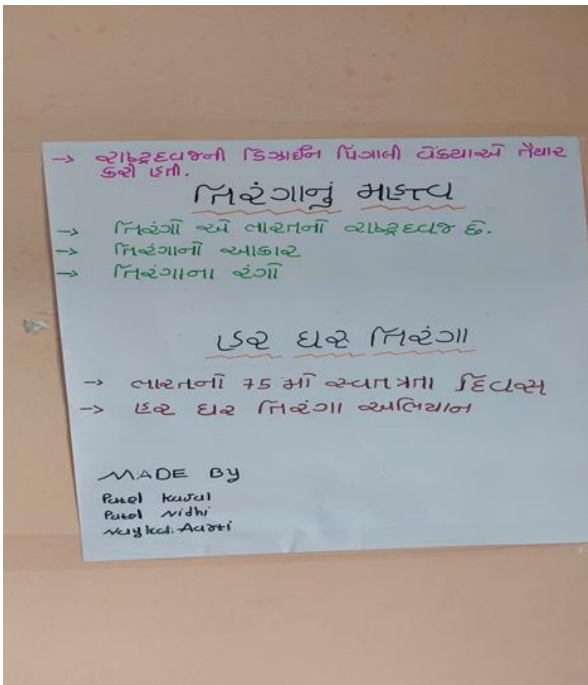 → રાષ્ટ્રદવજની ડિઝાઈન પિંગાલી વેંકયાએ તૈયાર
કરી હતી.
તિરંગાનું મહત્ત્વ
→ તિરંગો એ ભારતનો રાષ્ટ્રદવજ છે.
→ તિરંગાનો આકાર
→ તિરંગાના રંગો
હર ઘર તિરંગા
→ ભારતનો 75 મો સ્વતત્રતા દિવસ
→ હર ઘર તિરંગા અભિયાન
MADE By
Patel Kajal
Patel Nidhi
Nayka Aarti